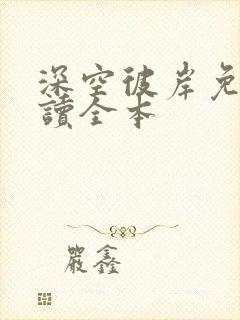 深空彼岸免
讀全本
嚴鑫